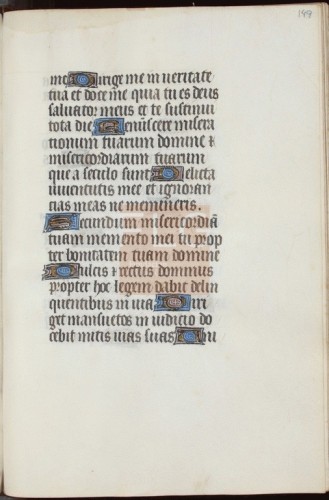 199
me Dirige me in veritate
tua et doce me quia tu es deus
saluator meus et te sustinui
tota die Reminiscere misera
tionum tuarum domine ⁊
misericordiarum tuarum
que a seculo sunt Delicta
iuuentutis mee et ignoran
cias meas ne memineris.
Secundum misericordiā
tuam memento mei tu prop
ter bonitatem tuam domine
Dulcis ⁊ rectus dominus
propter hoc legem dabit delin
quentibus in uia Diri
get mansuetos in iudicio do
cebit mitis uias suas Vni